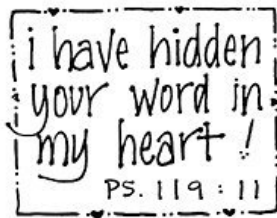 i have hidden
your word in
my heart!
PS. 119:11